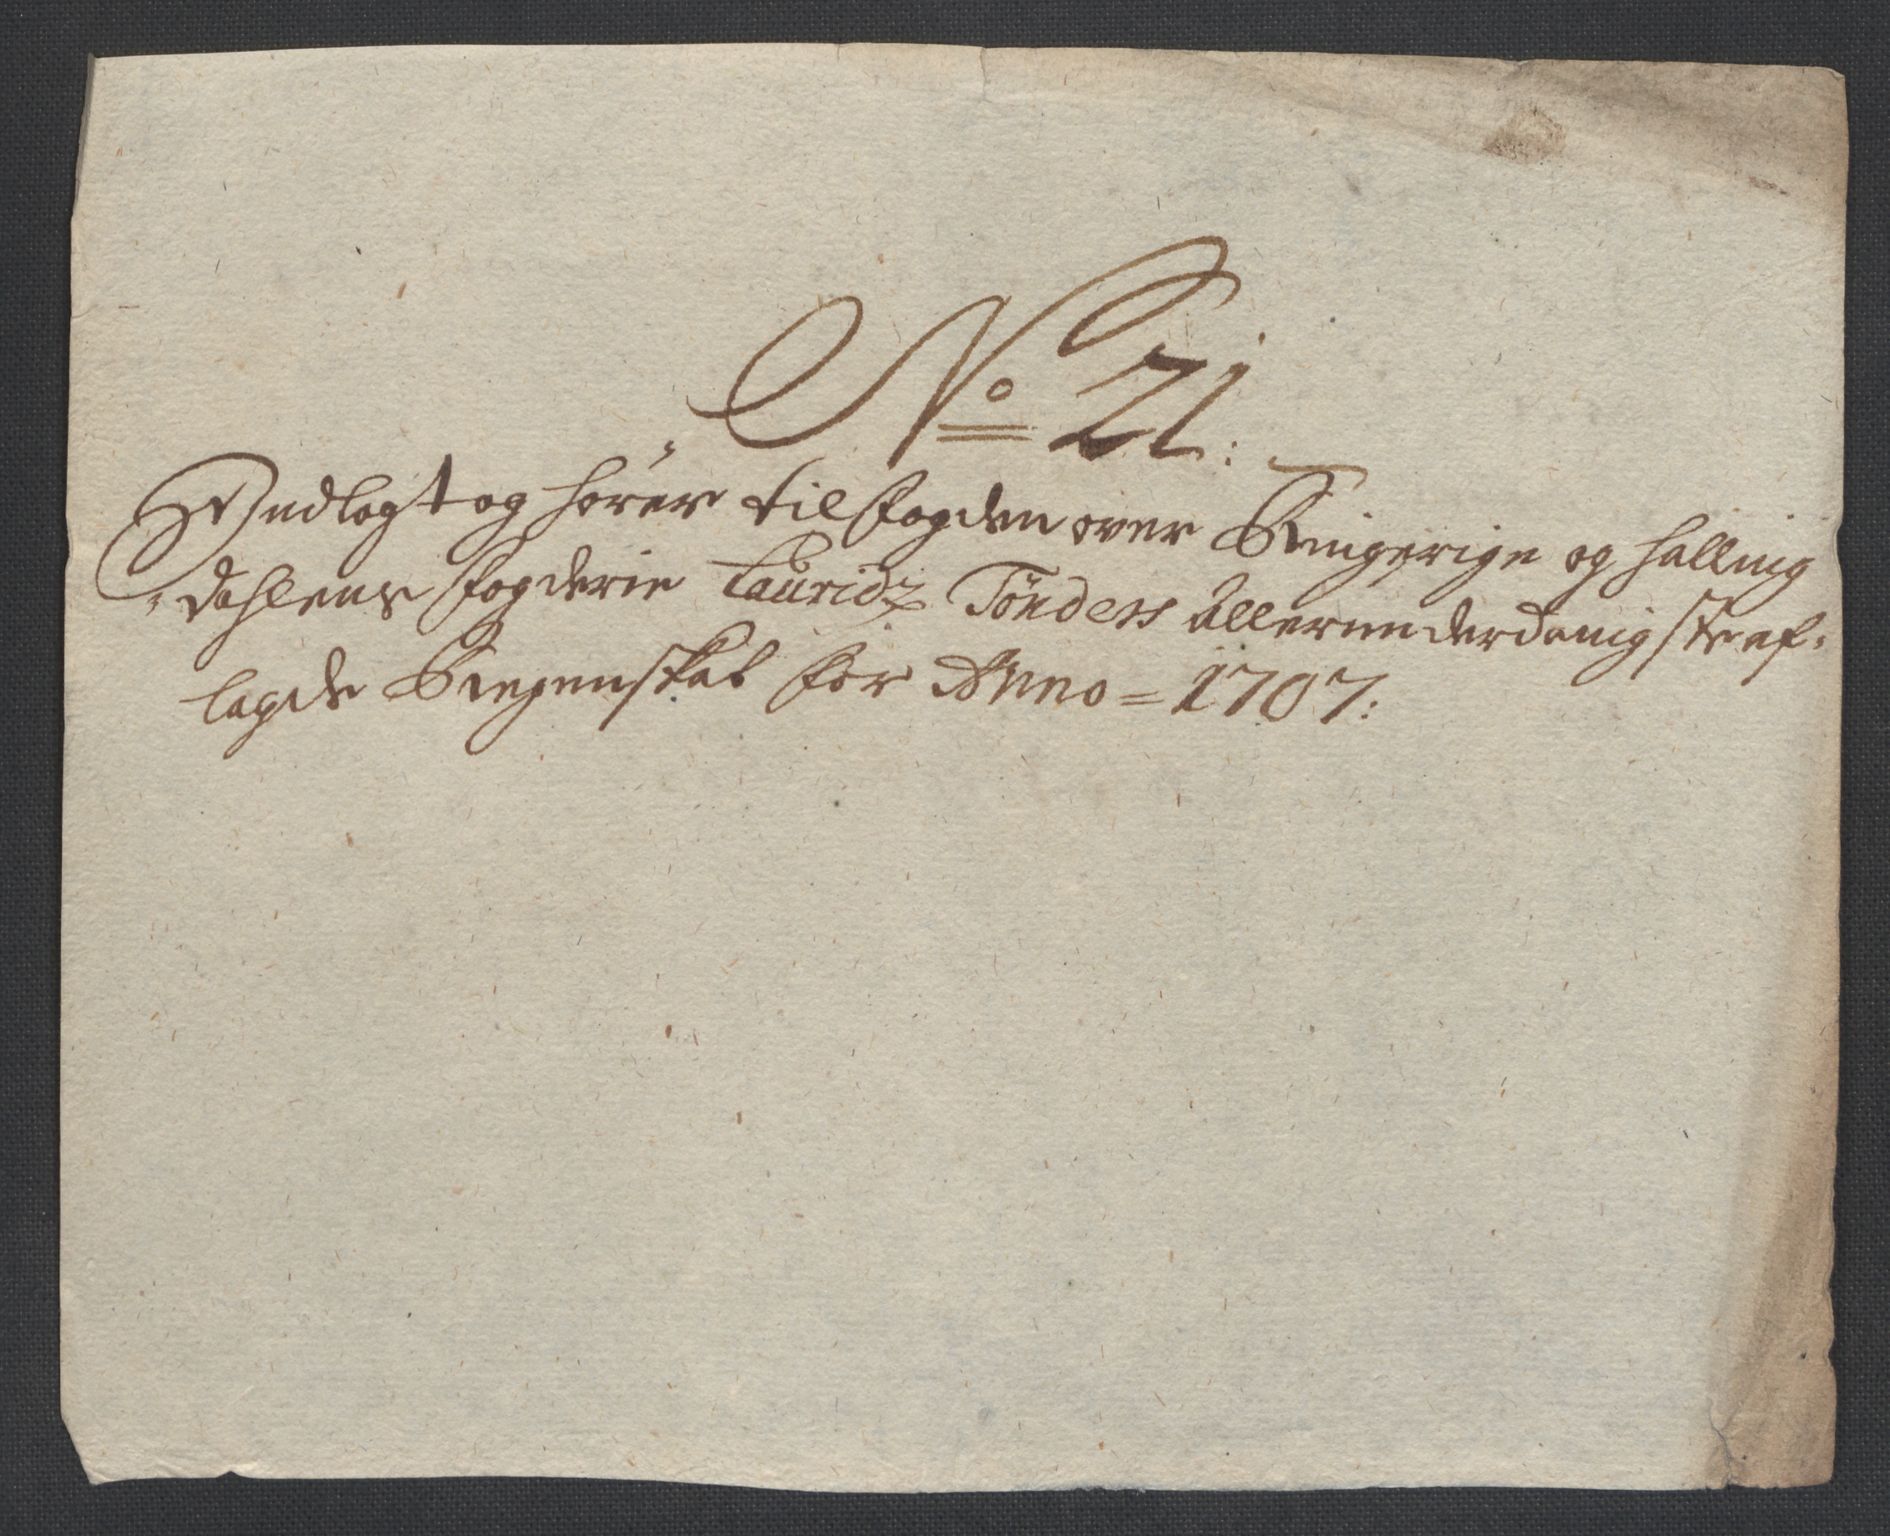 No 21:
Indlagt og hører til fogden over Ringerige og Halling
dahlens fogderie Lauridz Tønders allerunderdanigste af-
lagde Regenskab for Anno = 1707: